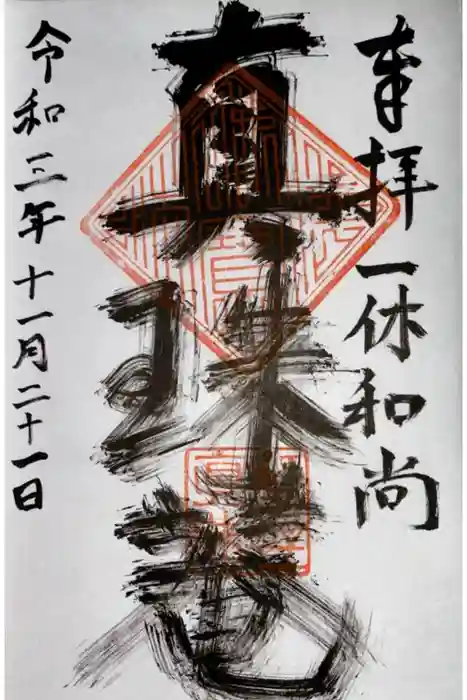 奉拝一休和尚
真珠庵
令和三年十一月二十一日